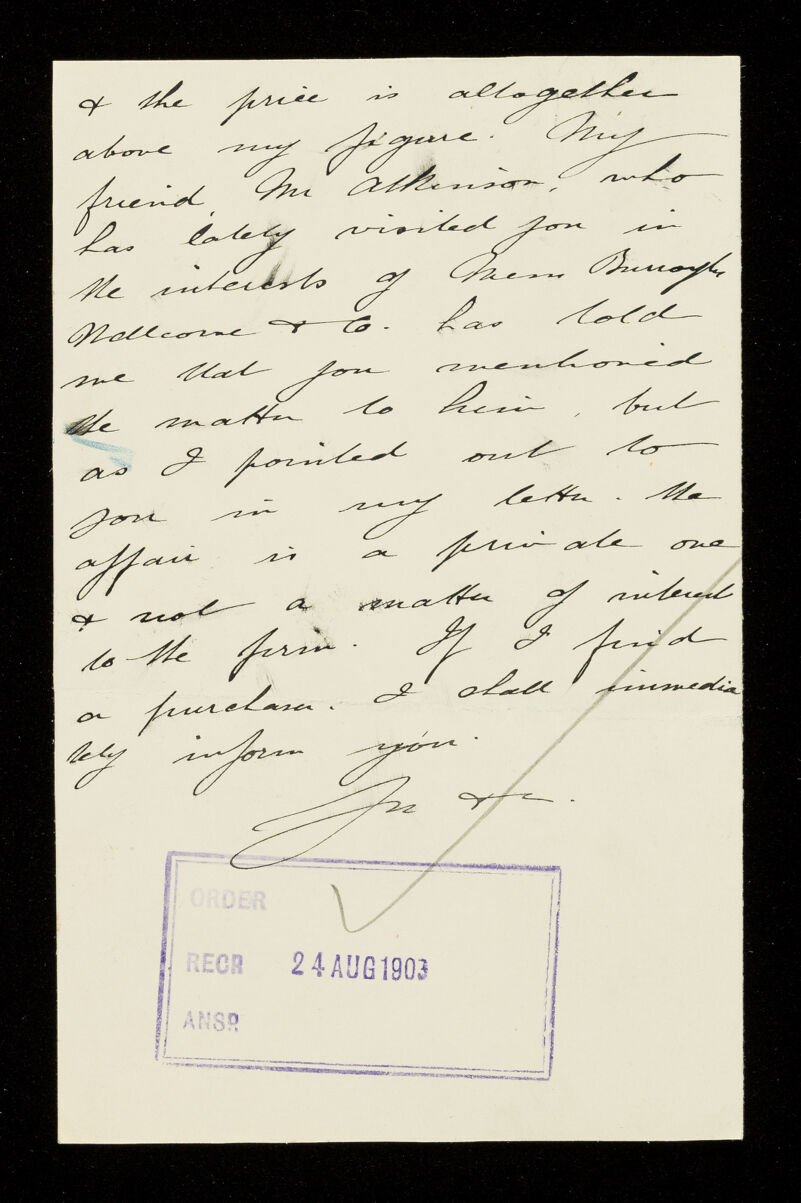 & the price is altogether
above my figure. My
friend, Mr Atkinson, who
has lately visited you in
the interests of Messrs Burroughs
Wellcome & Co. has told
me that you mentioned
the matter to him, but
as I pointed out to
you in my letter. the
affair is a private one
& not a matter of interest
to the firm. If I find
a purchaser. I shall immedia
tely inform you.
Yrs &c.
ORDER
RECR 24 AUG 1903
ANSR